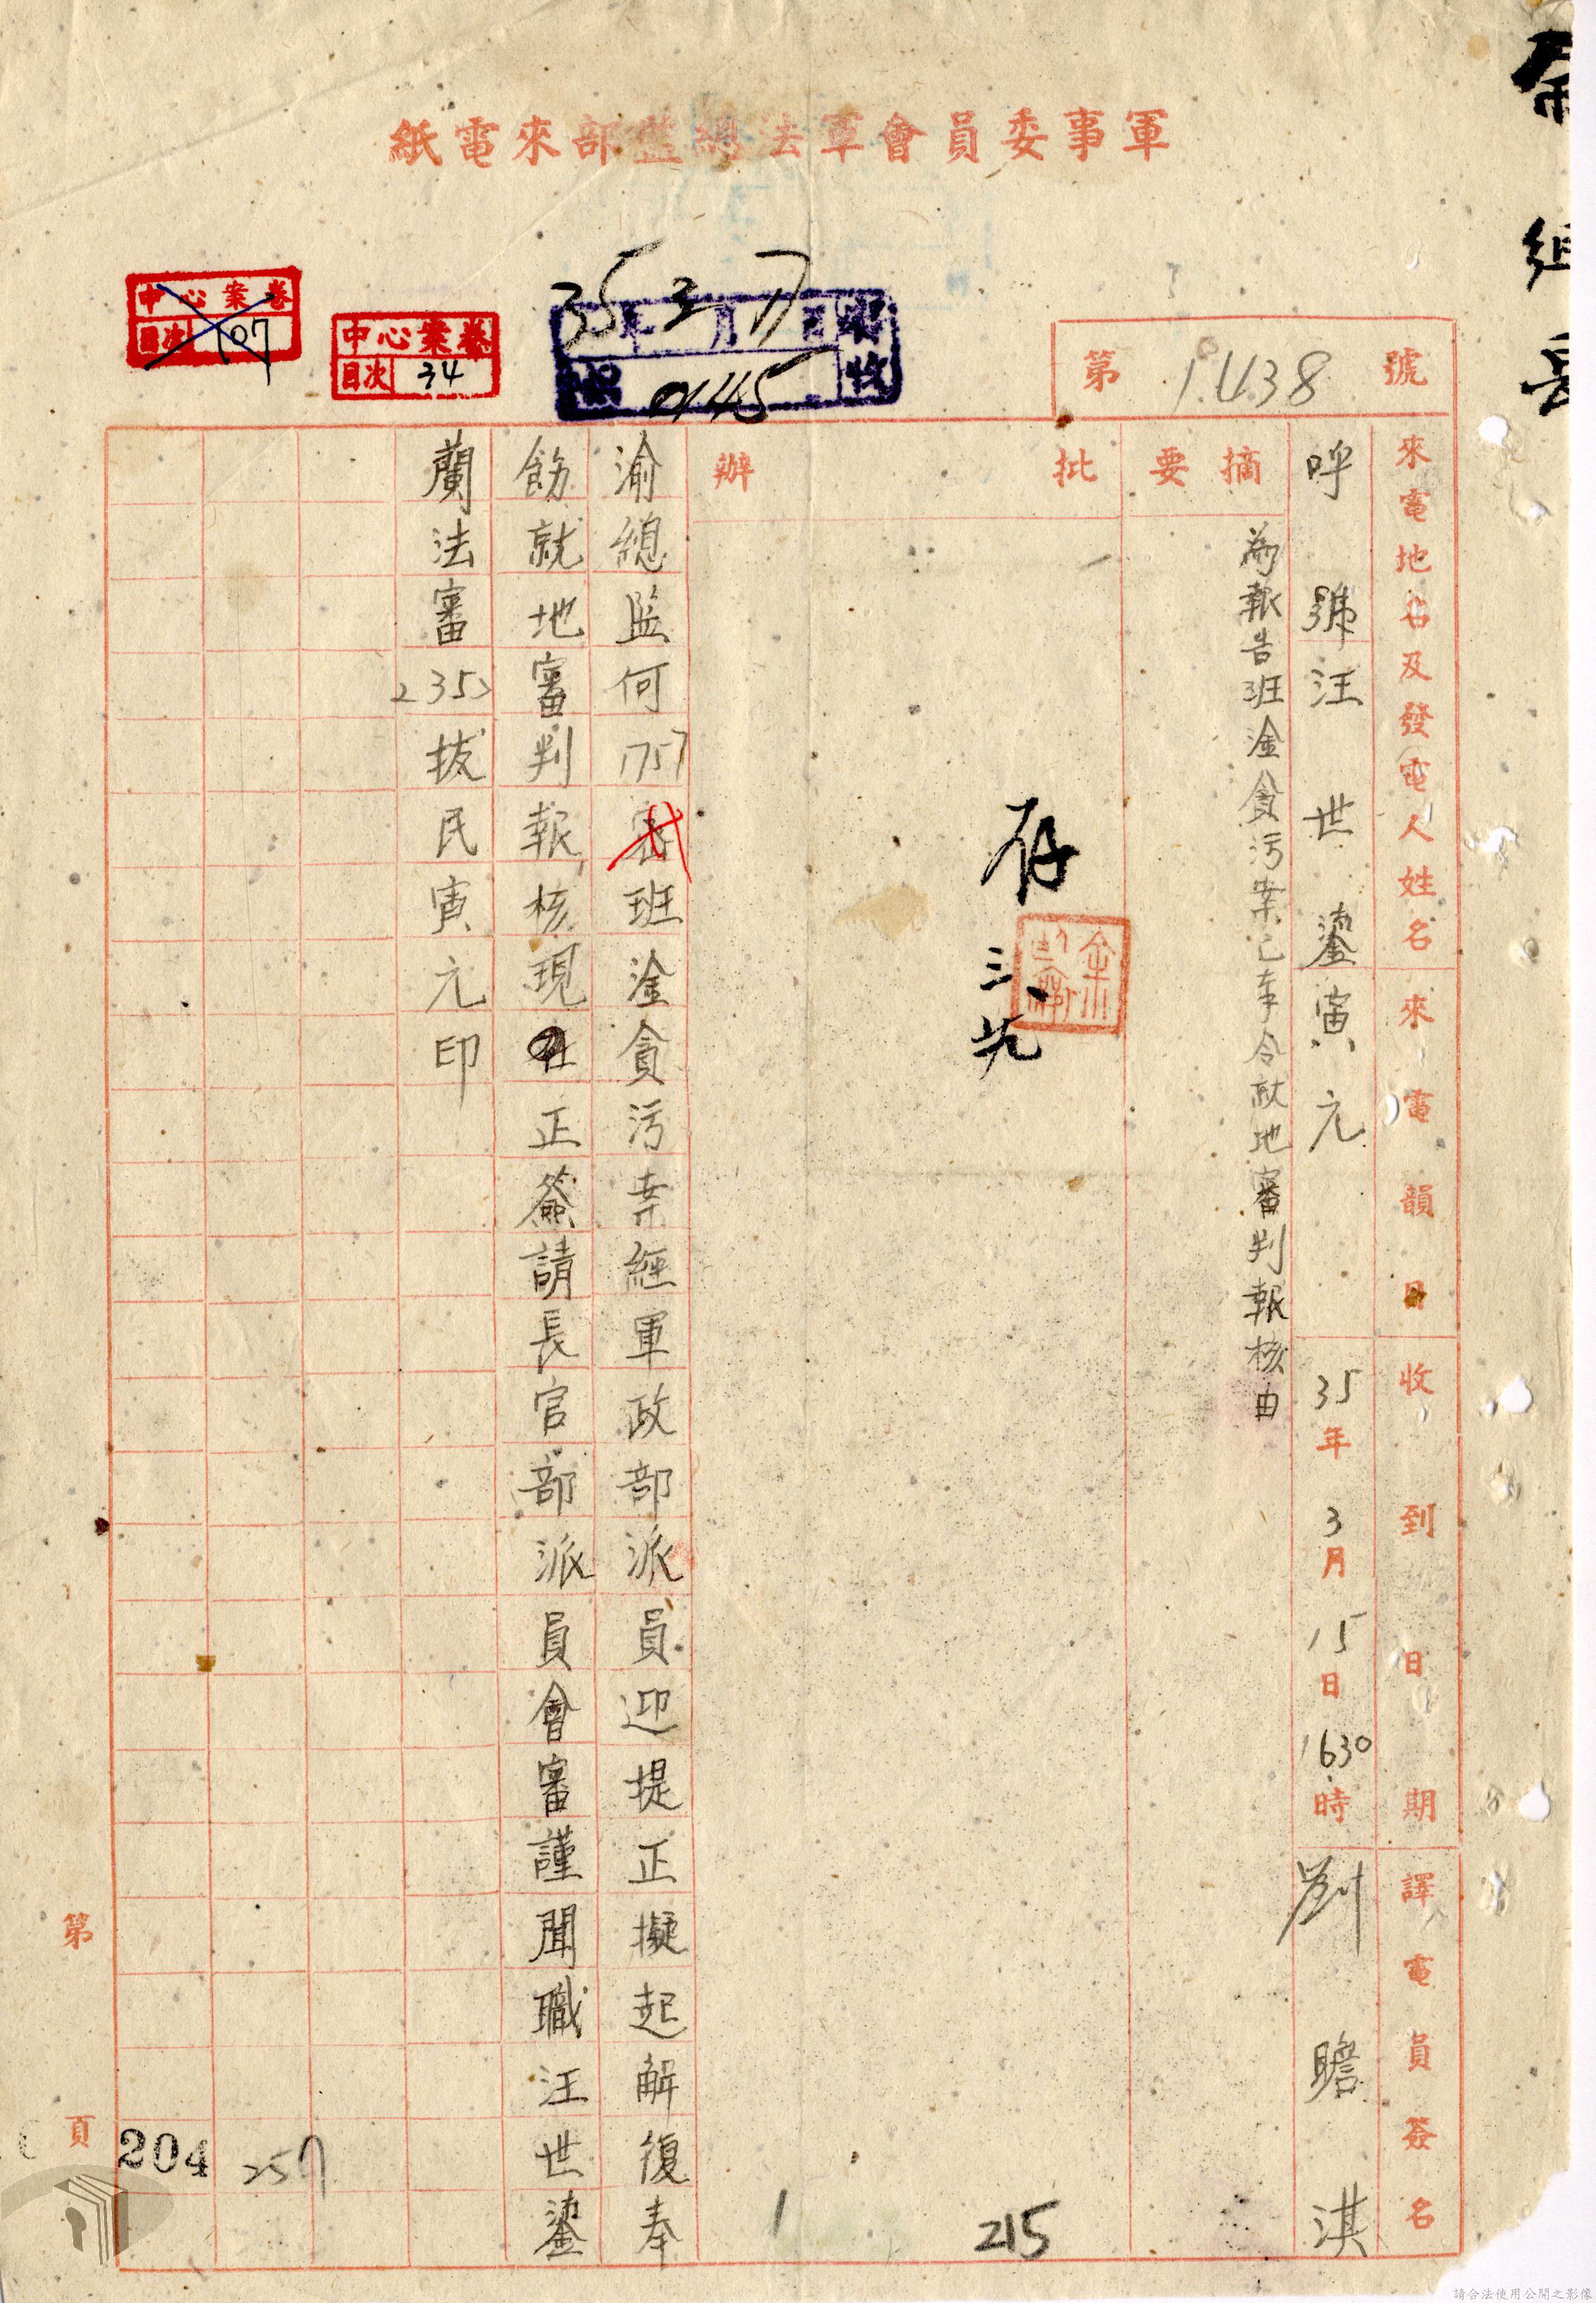 軍事委員會軍法總監部來電紙
余組長
第1438號
35年3月17日
號0145
中心案卷
目次34
中心案卷
目次107
來電地名及發電人姓名
來電韻目
收到日期
譯電員簽名
呼號汪世鎏寅元
35年3月15日1630時
劉瞻淇
摘要
為報告班淦貪污案已奉令就地審判報核由
批辦
存
三、
渝總監何1757密班淦貪污案經軍政部派員迎提正擬起解復奉
飭就地審判報核現在正簽請長官部派員會審謹聞職汪世鎏
蘭法審235拔民寅元印
第頁
204
257
1
215
請合法使用公開之影像